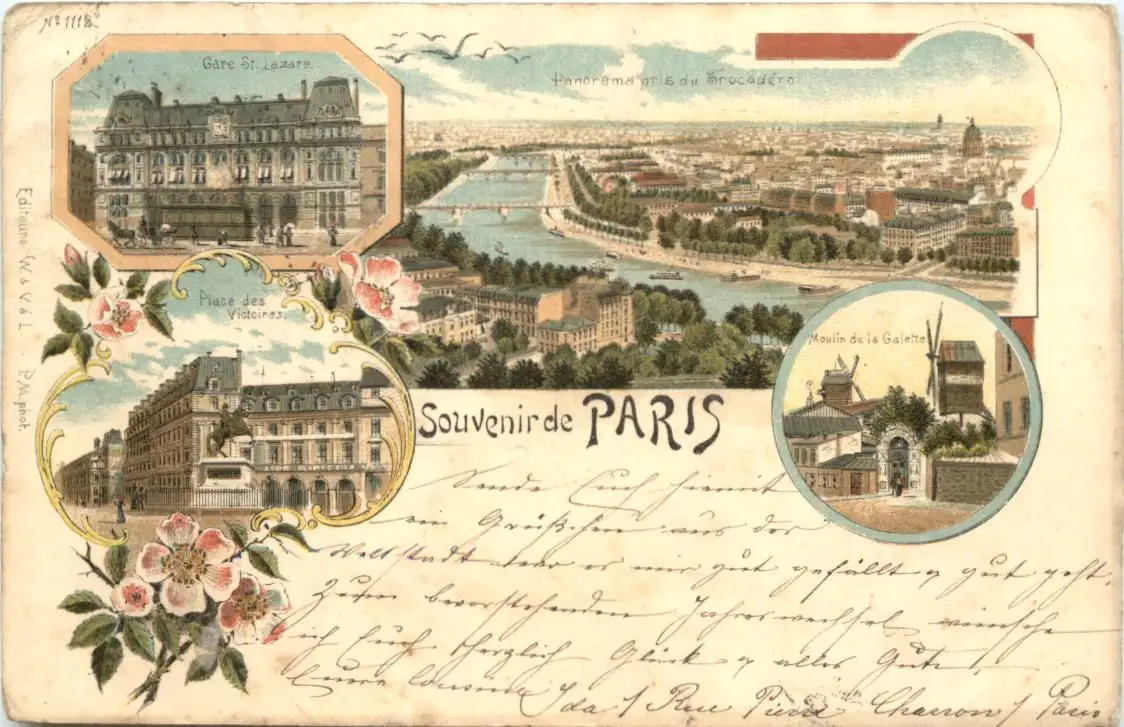 Nº 1112
Gare St. Lazare.
Panorama pris du Trocadéro
Editeurs W. & V. à L.
P.M. phot.
Place des
Victoires.
Moulin de la Galette
Souvenir de PARIS
Sende Euch hiermit
ein Grüßchen aus der
Weltstadt wo es mir gut gefällt & gut geht.
Zum bevorstehenden Jahreswechsel wünsche
ich Euch herzlich Glück & alles Gute
Eure Cousine Ida / Rue Pierre Charron / Paris